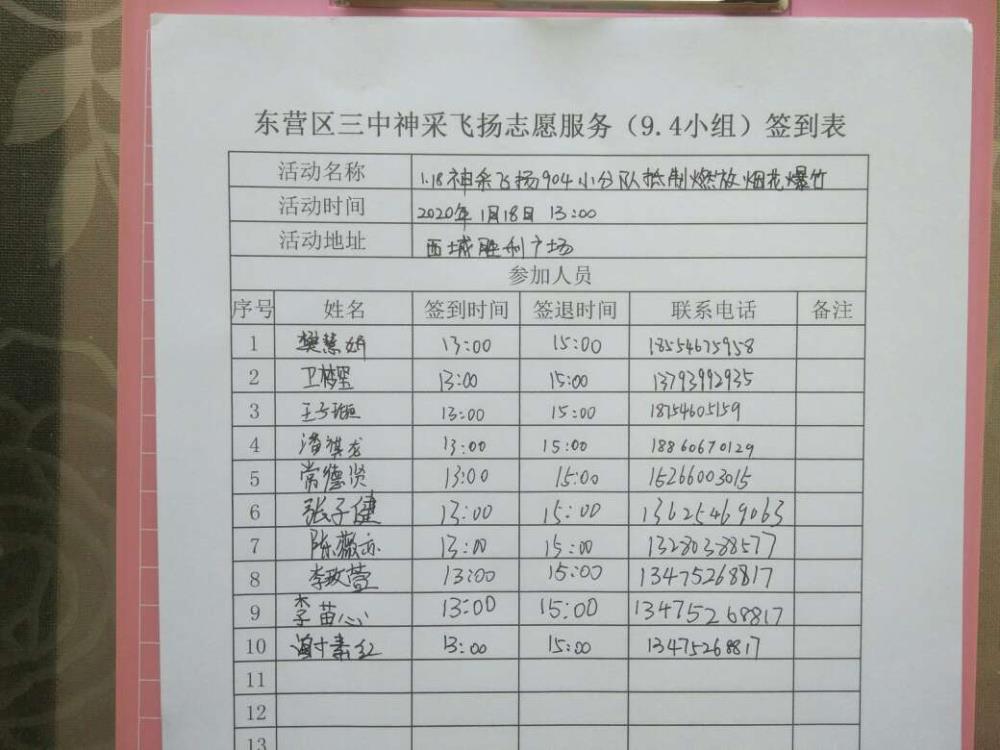 东营区三中神采飞扬志愿服务（9.4小组）签到表
活动名称 1.18神采飞扬904小分队抵制燃放烟花爆竹
活动时间 2020年1月18日 13:00
活动地址 西城胜利广场
参加人员
序号 姓名 签到时间 签退时间 联系电话 备注
1 樊慧娇 13:00 15:00 18554675958
2 卫梓堃 13:00 15:00 13793992935
3 王子 13:00 15:00 18754605159
4 潘祺龙 13:00 15:00 18860670129
5 常德贤 13:00 15:00 15266003015
6 张子健 13:00 15:00 13625469063
7 陈薇亦 13:00 15:00 13280388577
8 李玫萱 13:00 15:00 13475268817
9 李苗心 13:00 15:00 13475268817
10 谢素红 13:00 15:00 13475268817
11
12
13